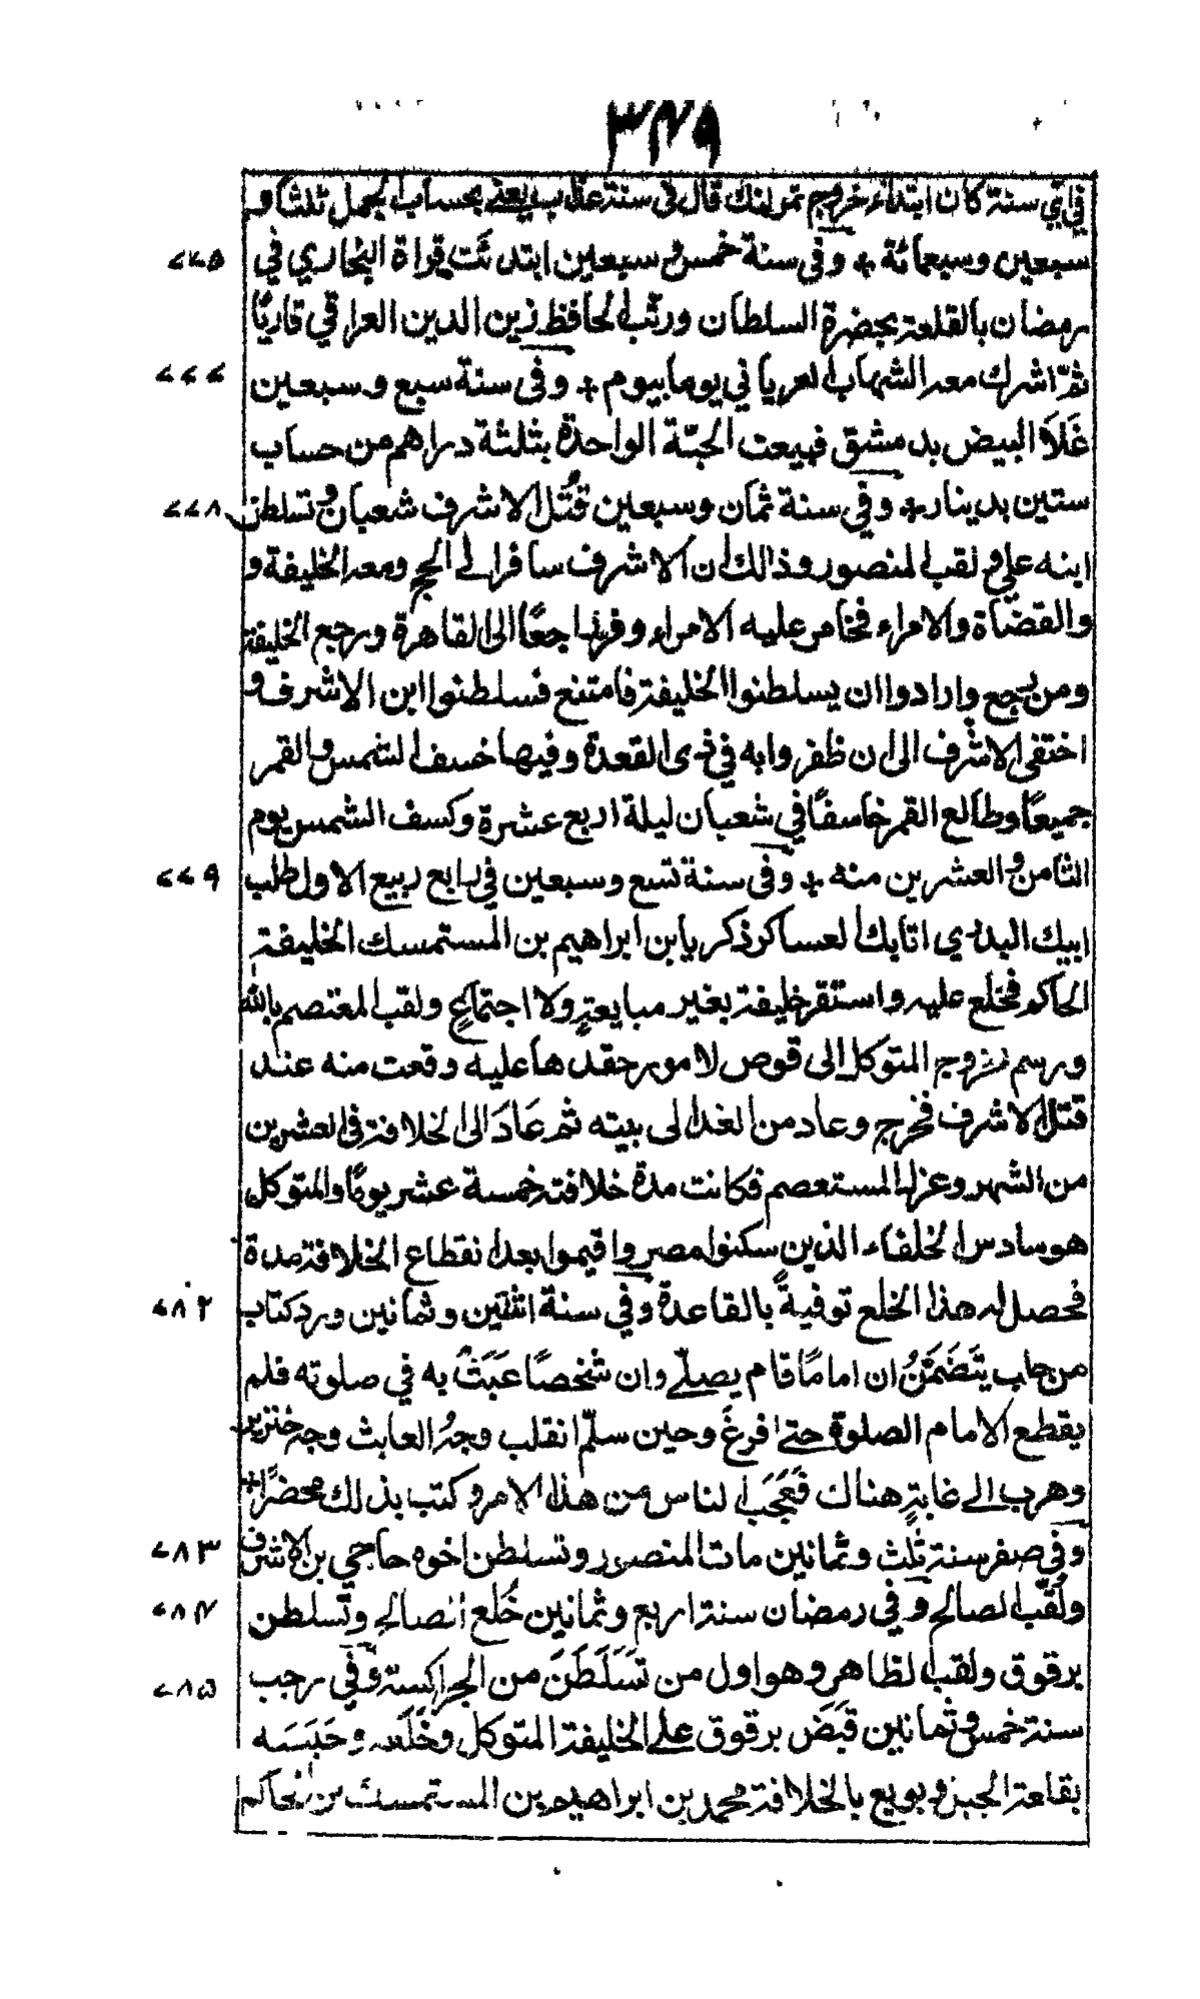 ٣٤٩
في اي سنة كان ابتداء خروج تمرلنك قال في سنة عذاب يعني بحساب الجمل ثلثا و
سبعين وسبعمائة + وفي سنة خمس و سبعين ابتدئت قراة البخاري في ٧٧٥
رمضان بالقلعة بحضرة السلطان ورتب الحافظ زين الدين العراقي قاريًا
ثمّ اشرك معه الشهاب العرياني يوما بيوم + وفي سنة سبع وسبعين ٧٧٧
غَلَا البيض بدمشق فبيعت الحبّة الواحدة بثلثة دراهم من حساب
ستين بدينار + وفي سنة ثمان وسبعين قُتُل الاشرف شعبان و تسلطن ٧٧٨
ابنه علي و لقب المنصور وذالك ان الاشرف سافر الى الحج ومعه الخليفة و
والقضاة والامراء فخامر عليه الامراء وفر راجعًا الى القاهرة ورجع الخليفة
ومن رجع وارادوا ان يسلطنوا الخليفة فامتنع فسلطنوا ابن الاشرف و
اختفى الاشرف الى ان ظفروا به في ذى القعدة وفيها خسف الشمس و القمر
جميعًا وطالع القمر خاسفًا في شعبان ليلة اربع عشرة وكسف الشمس يوم
الثامن و العشرين منه + وفي سنة تسع وسبعين في رابع ربيع الاول طلب ٧٧٩
ايبك البدري اتابك العساكر ذكريا بن ابراهيم بن المستمسك الخليفة
الحاكم فخلع عليه واستقر خليفة بغير مبايعةٍ ولا اجتماعٍ ولقب المعتصم بالله
ورسم بخروج المتوكل الى قوص لامور حقدها عليه وقعت منه عند
قتل الاشرف فخرج وعاد من الغد الى بيته ثم عَادَ الى الخلافة في العشرين
من الشهر وعزل المستعصم فكانت مدة خلافته خمسة عشر يومًا والمتوكل
هو سادس الخلفاء الذين سكنوا مصر واقيموا بعد انقطاع الخلافة مدة
فحصل له هذا الخلع توفيةً بالقاعدة وفي سنة اثنتين وثمانين ورد كتاب ٧٨٢
من حلب يتَضَمَّنُ ان امامًا قام يصلّي وان شخصًا عَبَثَ به في صلوته فلم
يقطع الامام الصلوة حتى فرغَ وحين سلّم انقلب وجهُ العابث وجه خنزير
وهرب الى غابةٍ هناك فَعَجَبَ الناس من هذا الامر وكتب بذلك محضرًا +
وفي صفر سنة ثلث وثمانين مات المنصور وتسلطن اخوه حاجي بن الاشرف ٧٨٣
ولُقّب الصالح و في رمضان سنة اربع وثمانين خُلع الصالح وتسلطن ٧٨٤
برقوق ولقب الظاهر وهو اول من تَسَلطَنَ من الجراكسة و في رجب ٧٨٥
سنة خمس و ثمانين قَبَضَ برقوق على الخليفة المتوكل وخَلَعه وحَبَسَه
بقلعة الجبل و بويع بالخلافة محمد بن ابراهيم بن المستمسك بن الحاكم